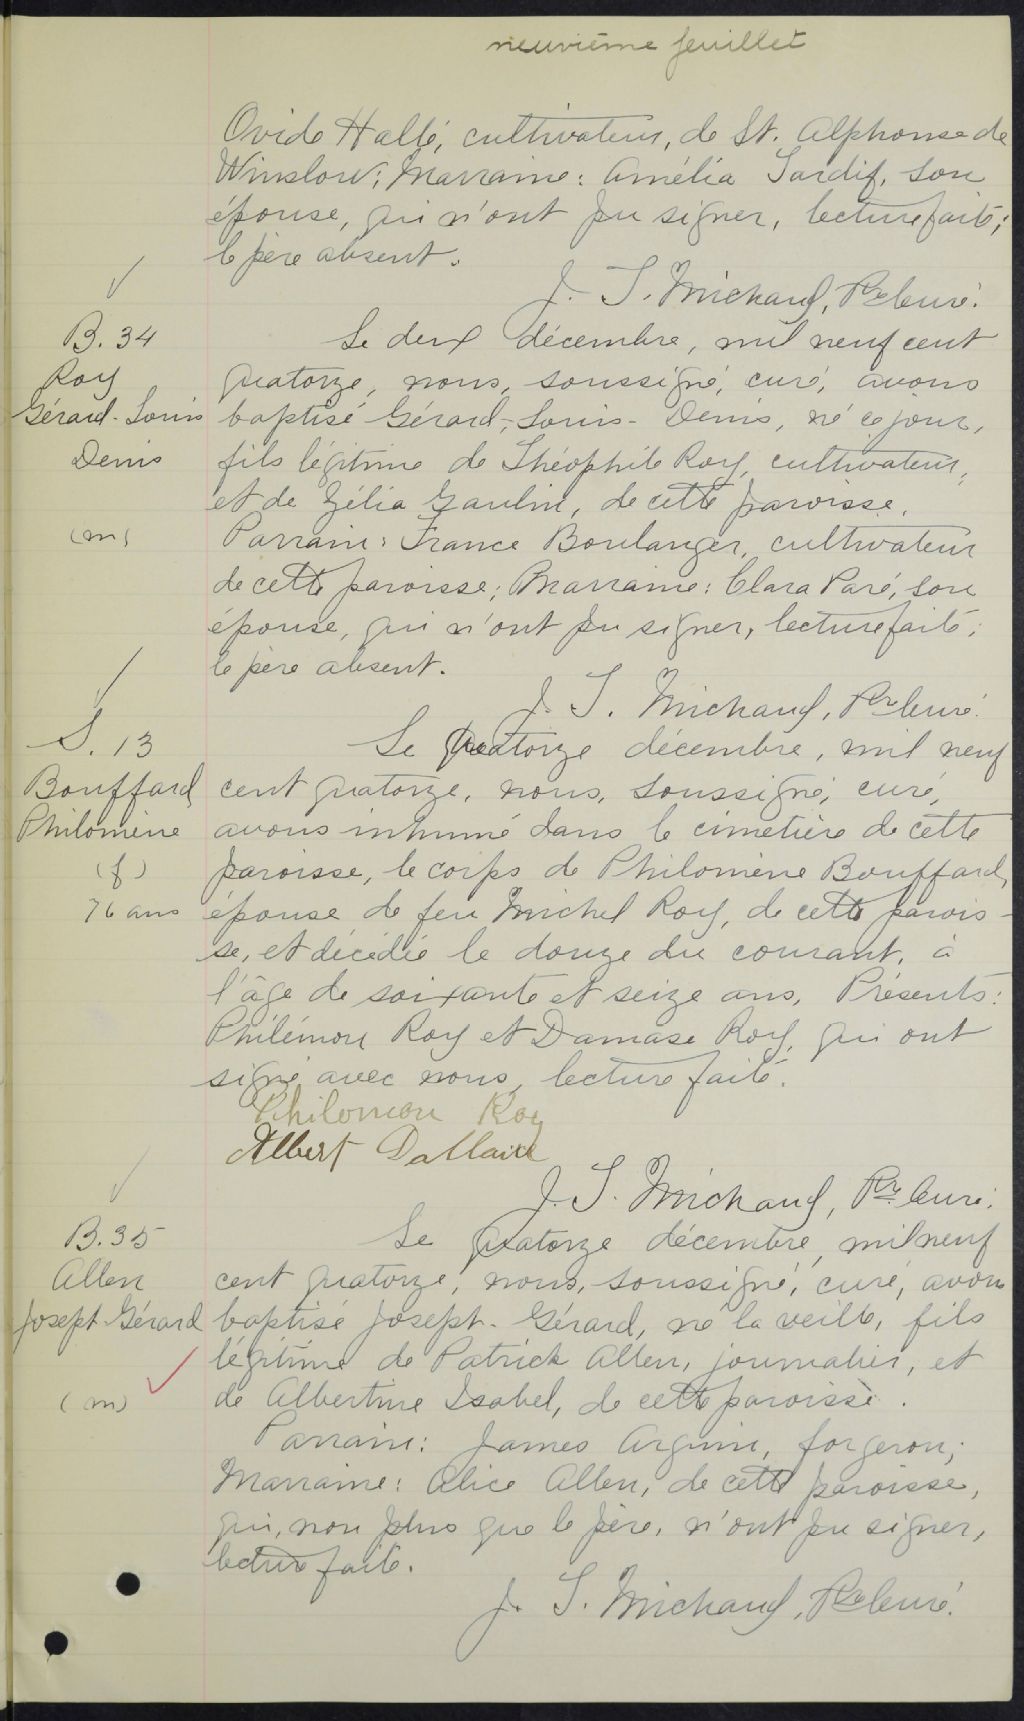 neuvième feuillet
Ovide Hallé, cultivateur, de St. Alphonse de
Winslow; Marraine: Amélia Tardif, son
épouse, qui n'ont pu signer, lecture faite;
le père absent.
J. T. Michaud, Ptre Curé.
B. 34
Roy
Gérard-Louis
Denis
(m)
Le deux décembre, mil neuf cent
quatorze, nous, soussigné, curé, avons
baptisé Gérard-Louis-Denis, né ce jour,
fils légitime de Théophile Roy, cultivateur,
et de Zélia Gaulin, de cette paroisse.
Parrain: France Boulanger, cultivateur
de cette paroisse; Marraine: Clara Paré, son
épouse, qui n'ont pu signer, lecture faite;
le père absent.
J. T. Michaud, Ptre Curé.
S. 13
Bouffard
Philomène
(f)
76 ans
Le quatorze décembre, mil neuf
cent quatorze, nous, soussigné, curé,
avons inhumé dans le cimetière de cette
paroisse, le corps de Philomène Bouffard,
épouse de feu Michel Roy, de cette parois-
se, et décédée le douze du courant, à
l'âge de soixante et seize ans. Présents:
Philémon Roy et Damase Roy, qui ont
signé avec nous, lecture faite.
Philomon Roy
Albert Dallaire
J. T. Michaud, Ptre Curé.
B. 35
Allen
Joseph Gérard
(m)
Le quatorze décembre, mil neuf
cent quatorze, nous, soussigné, curé, avons
baptisé Joseph-Gérard, né la veille, fils
légitime de Patrick Allen, journalier, et
de Albertine Isabel, de cette paroisse.
Parrain: James Arguin, forgeron;
Marraine: Alice Allen, de cette paroisse,
qui, non plus que le père, n'ont pu signer,
lecture faite.
J. T. Michaud, Ptre Curé.